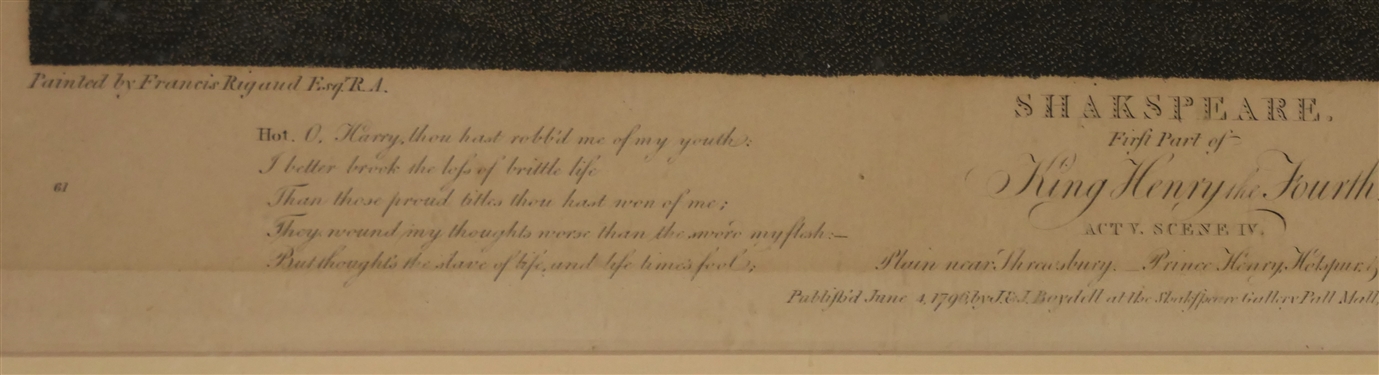 Painted by Francis Rigaud Esqr. R.A.
Hot. O, Harry, thou hast robb'd me of my youth:
I better brook the loſs of brittle life
Than those proud titles thou hast won of me;
They wound my thoughts worse than the sword my flesh:—
But thought's the slave of life, and life time's fool;
61
SHAKSPEARE.
Firſt Part of
King Henry the Fourth.
ACT V. SCENE IV.
Plain near Shrewsbury.—Prince Henry, Hotspur, &
Publiſh'd June 4, 1796, by J. & J. Boydell at the Shakſpeare Gallery Pall Mall,